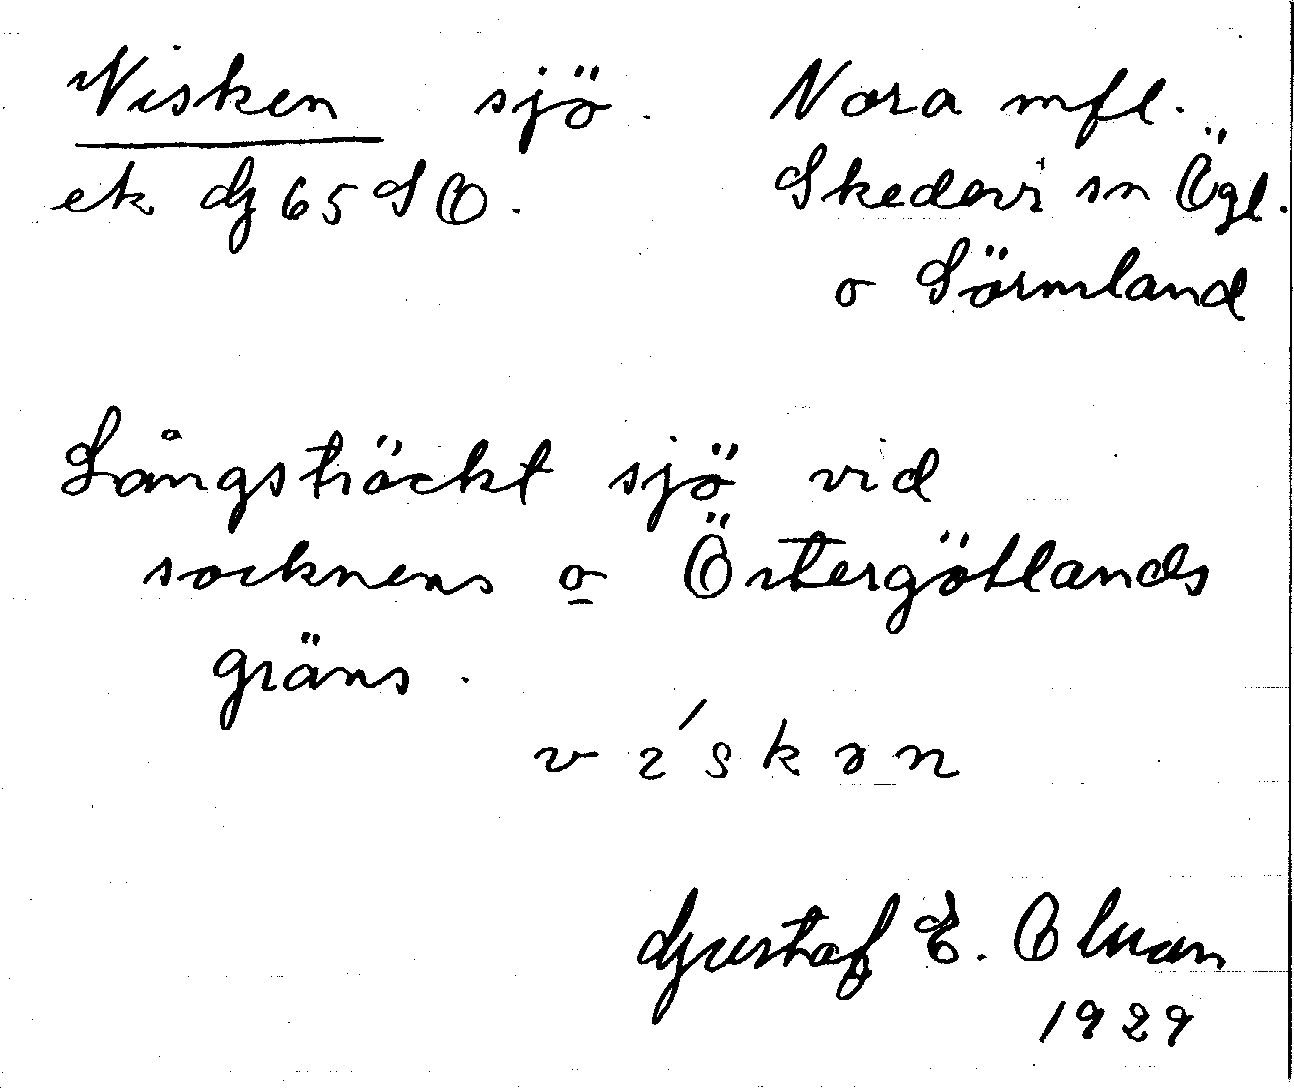 Visken sjö. Nora mfl.
ek G 65 SO. Skedevi sn Ögl.
o Sörmland
Långsträckt sjö vid
socknens o Östergötlands
gräns.
vi´skən
Gustaf E. Olsson
1929